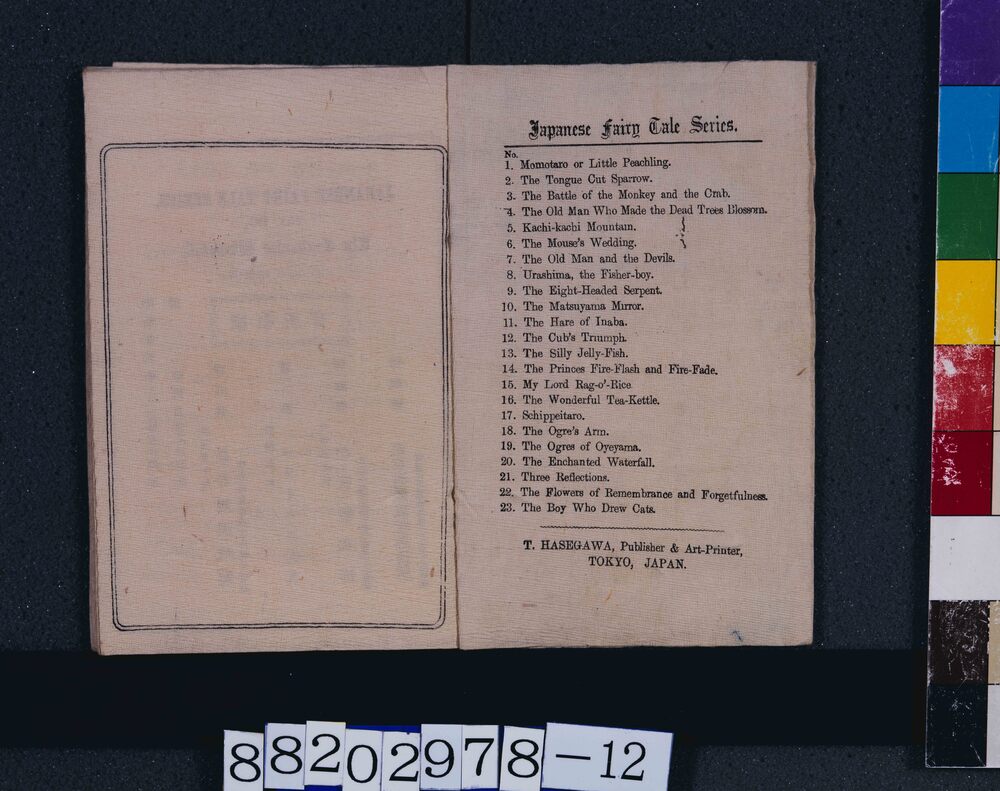 Japanese Fairy Tale Series.
No.
1. Momotaro or Little Peachling.
2. The Tongue Cut Sparrow.
3. The Battle of the Monkey and the Crab.
4. The Old Man Who Made the Dead Trees Blossom.
5. Kachi-kachi Mountain.
6. The Mouse's Wedding.
7. The Old Man and the Devils.
8. Urashima, the Fisher-boy.
9. The Eight-Headed Serpent.
10. The Matsuyama Mirror.
11. The Hare of Inaba.
12. The Cub's Triumph.
13. The Silly Jelly-Fish.
14. The Princes Fire-Flash and Fire-Fade.
15. My Lord Bag-o'-Rice
16. The Wonderful Tea-Kettle.
17. Schippeitaro.
18. The Ogre's Arm.
19. The Ogres of Oyeyama.
20. The Enchanted Waterfall.
21. Three Reflections.
22. The Flowers of Remembrance and Forgetfulness.
23. The Boy Who Drew Cats.
T. HASEGAWA, Publisher & Art-Printer,
TOKYO, JAPAN.
88202978-12